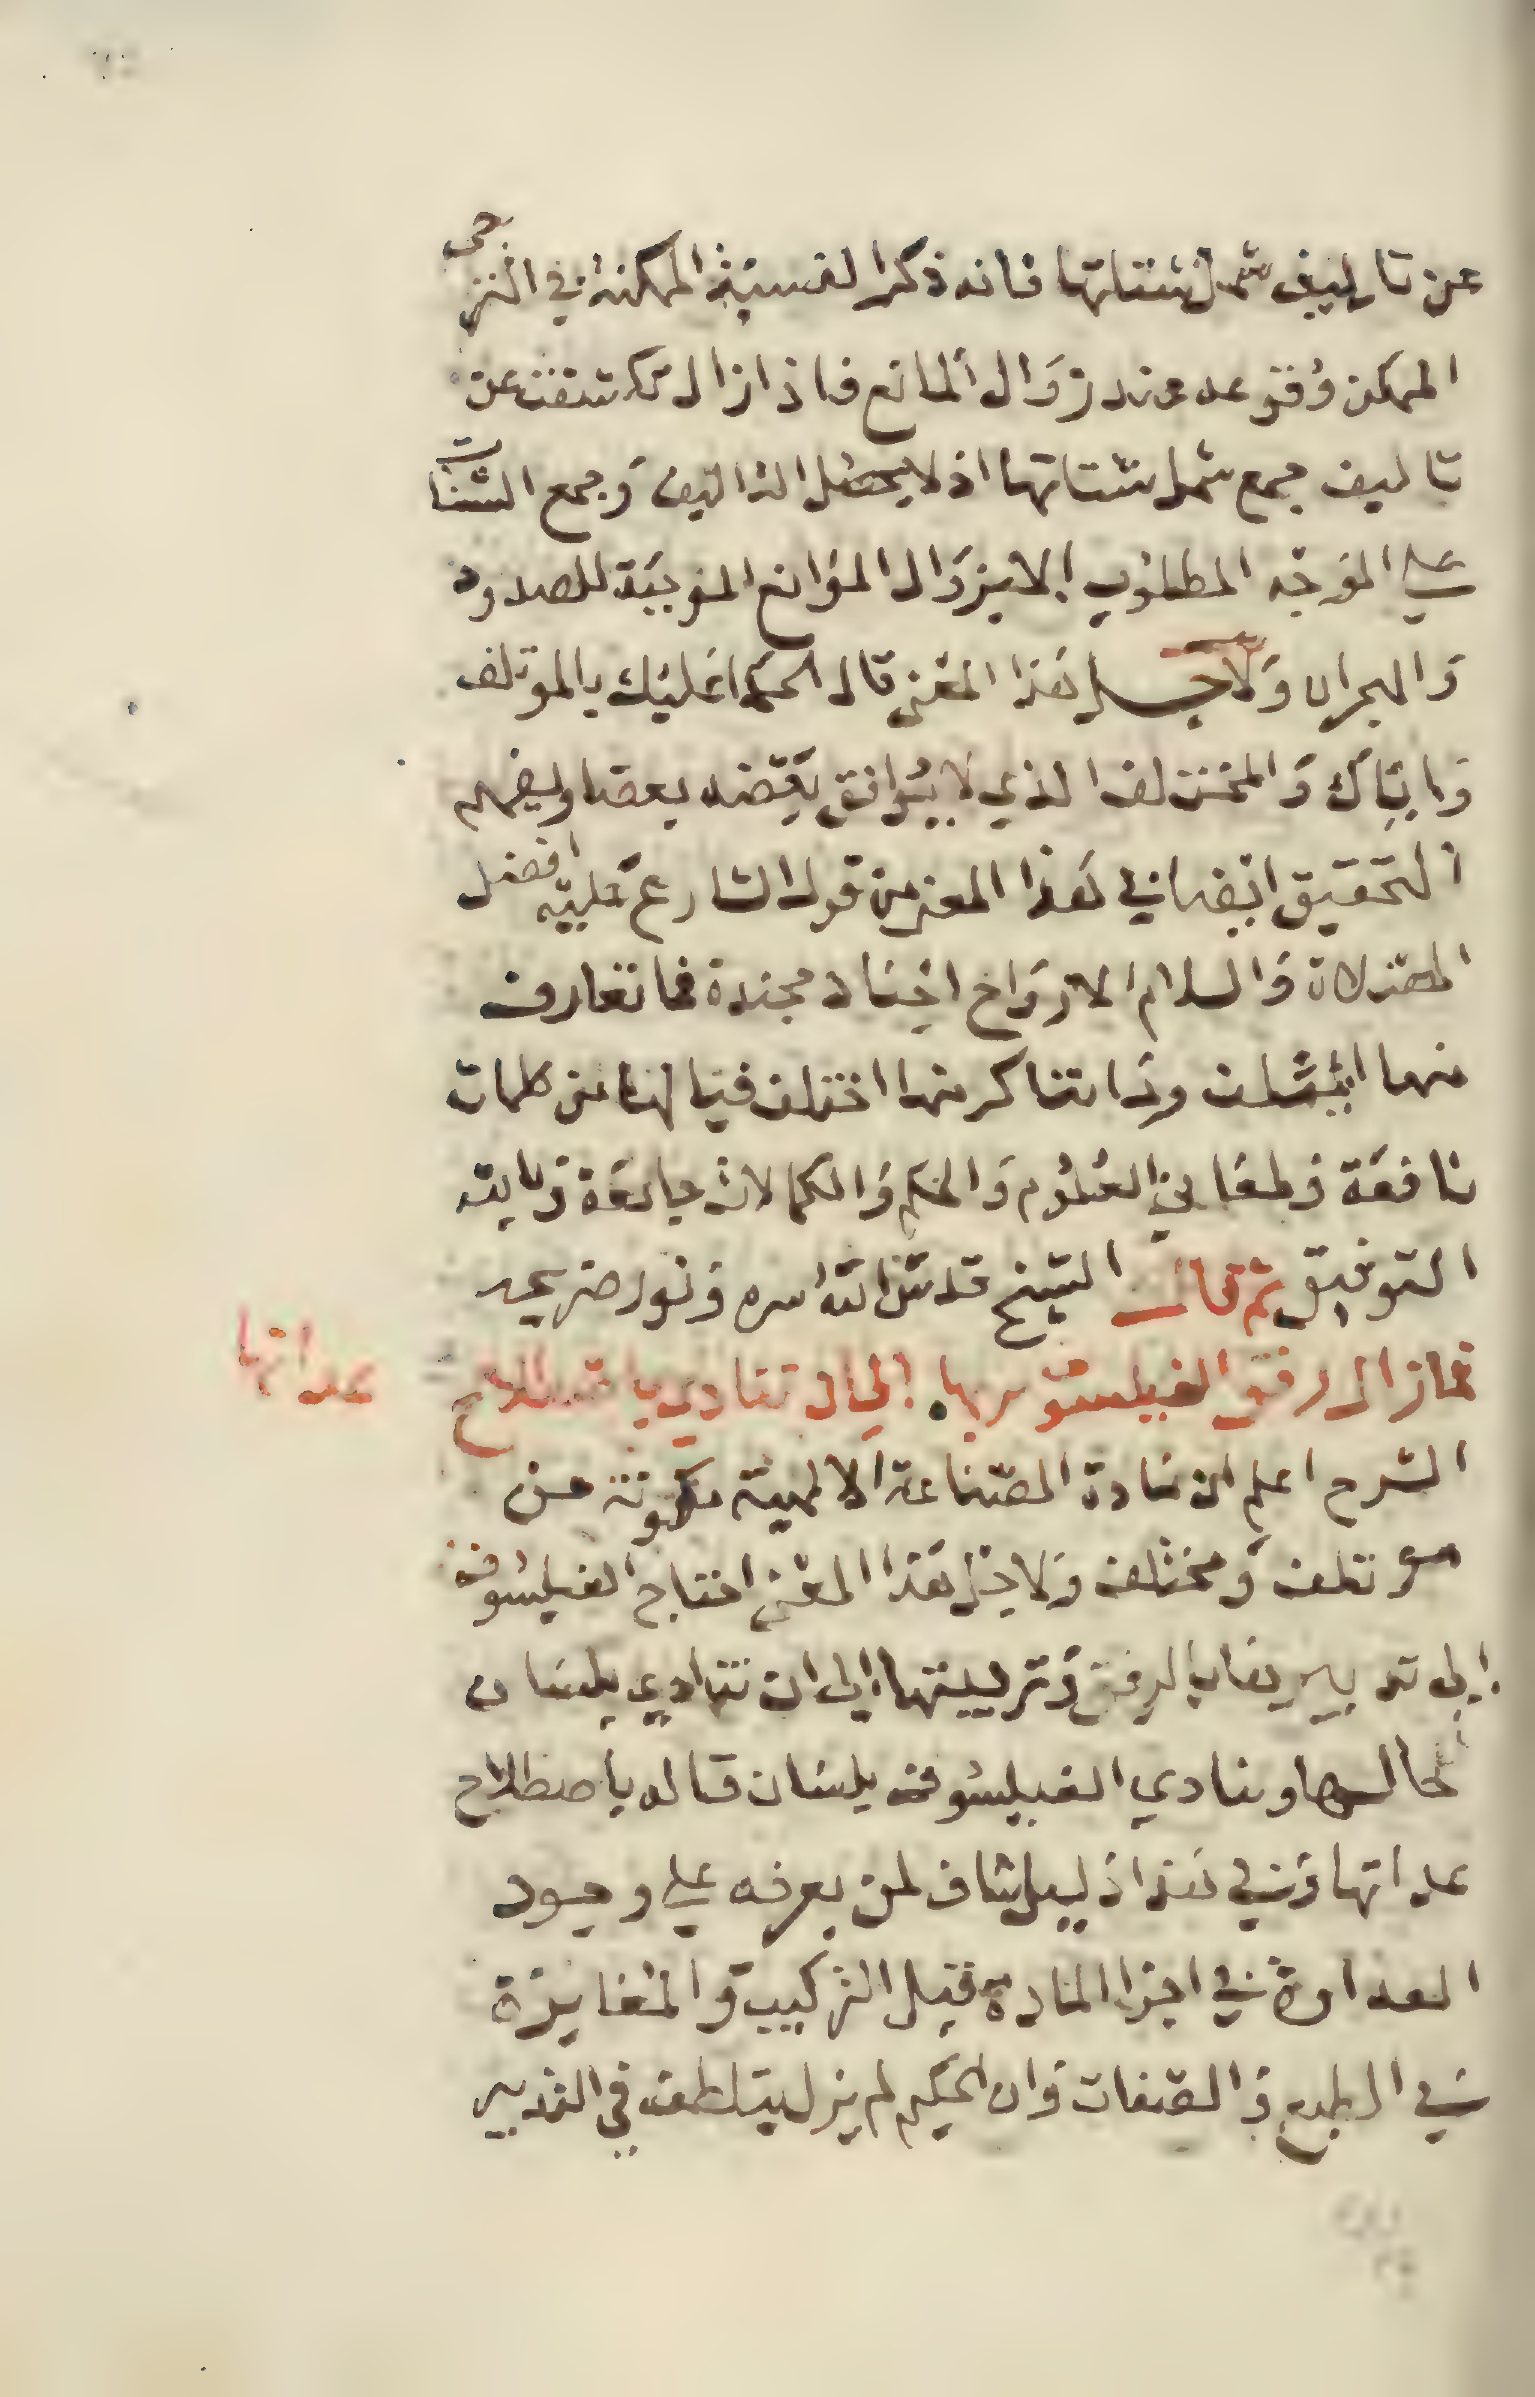 عن تاليف شمل شتاتها فانه ذكر النسبة الممكنة في الشي
الممكن وقوعه عند زوال المانع فاذا زال تكشفت عن
تاليف جمع شمل شتاتها اذ لا يحصل التاليف وجمع الشتات
على الوجه المطلوب الا بزوال الموانع الموجبة للصدود
والهجران ولاجل هذا المعنى قال الحكما عليك بالموتلف
واياك والمختلف الذي لا يوافق بعضه بعضا ويفهم
التحقيق ايضا في هذا المعنى من قول الشارع عليه افضل
الصلاة والسلام الارواح اجناد مجندة فما تعارف
منها ائتلف وما تناكر منها اختلف فيا لها من كلمات
نافعة في العلوم والحكم والكمالات جامعة وبالله
التوفيق ثم قال الشيخ قدس الله سره ونور ضريحه
فما زال رفق الفيلسوف بها الى ان تنادي باصطلاح
عداتها
الشرح اعلم ان مادة الصناعة الالهية مكونة من
موتلف ومختلف ولاجل هذا المعنى احتاج الفيلسوف
الى تدبيرها بالرفق وتربيتها الى ان تنادي بلسان
حالها وينادي الفيلسوف بلسان قاله باصطلاح
عداتها وفي هذا دليل شاف لمن يعرفه على وجود
العداوة في اجزا المادة قبل التركيب والمغايرة
في الطبع والصفات وان الحكيم لم يزل يتلطف في التدبير